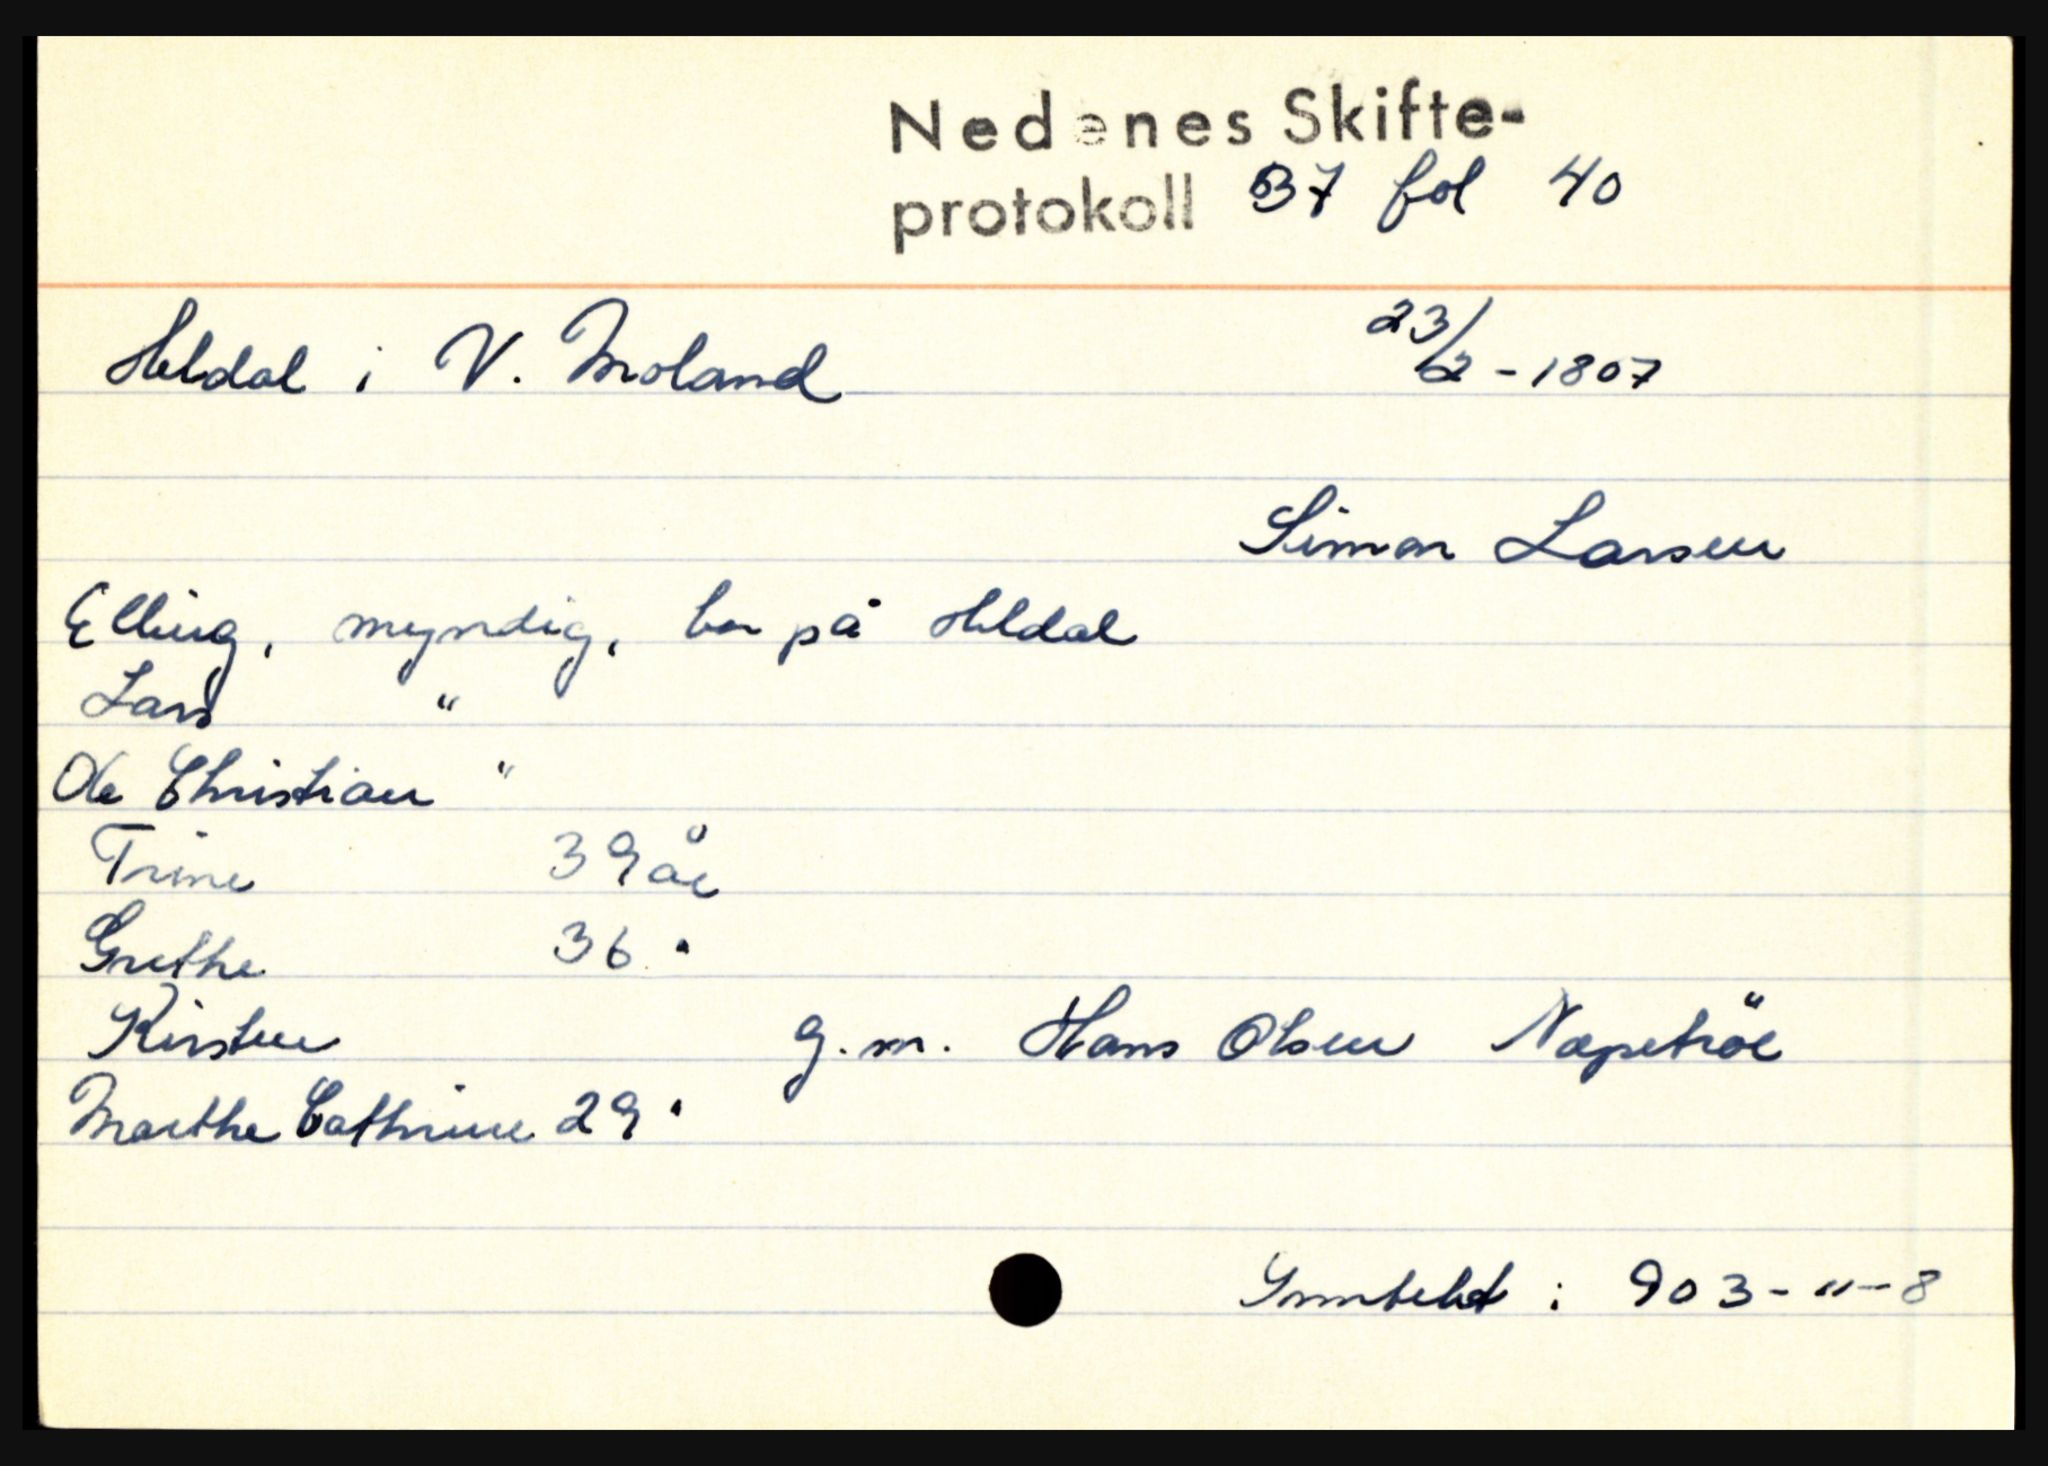 Nedenes Skifte-
protokoll B7 fol 40
Heldal i V. Moland 23/2 - 1807
Simon Larsen
Elling, myndig, bor på Heldal
Lars "
Ole Christian "
Trine 39 år
Grethe 36 "
Kirsten g.m. Hans Olsen
Marthe Cathrine 29 "
: 903 - " - 8